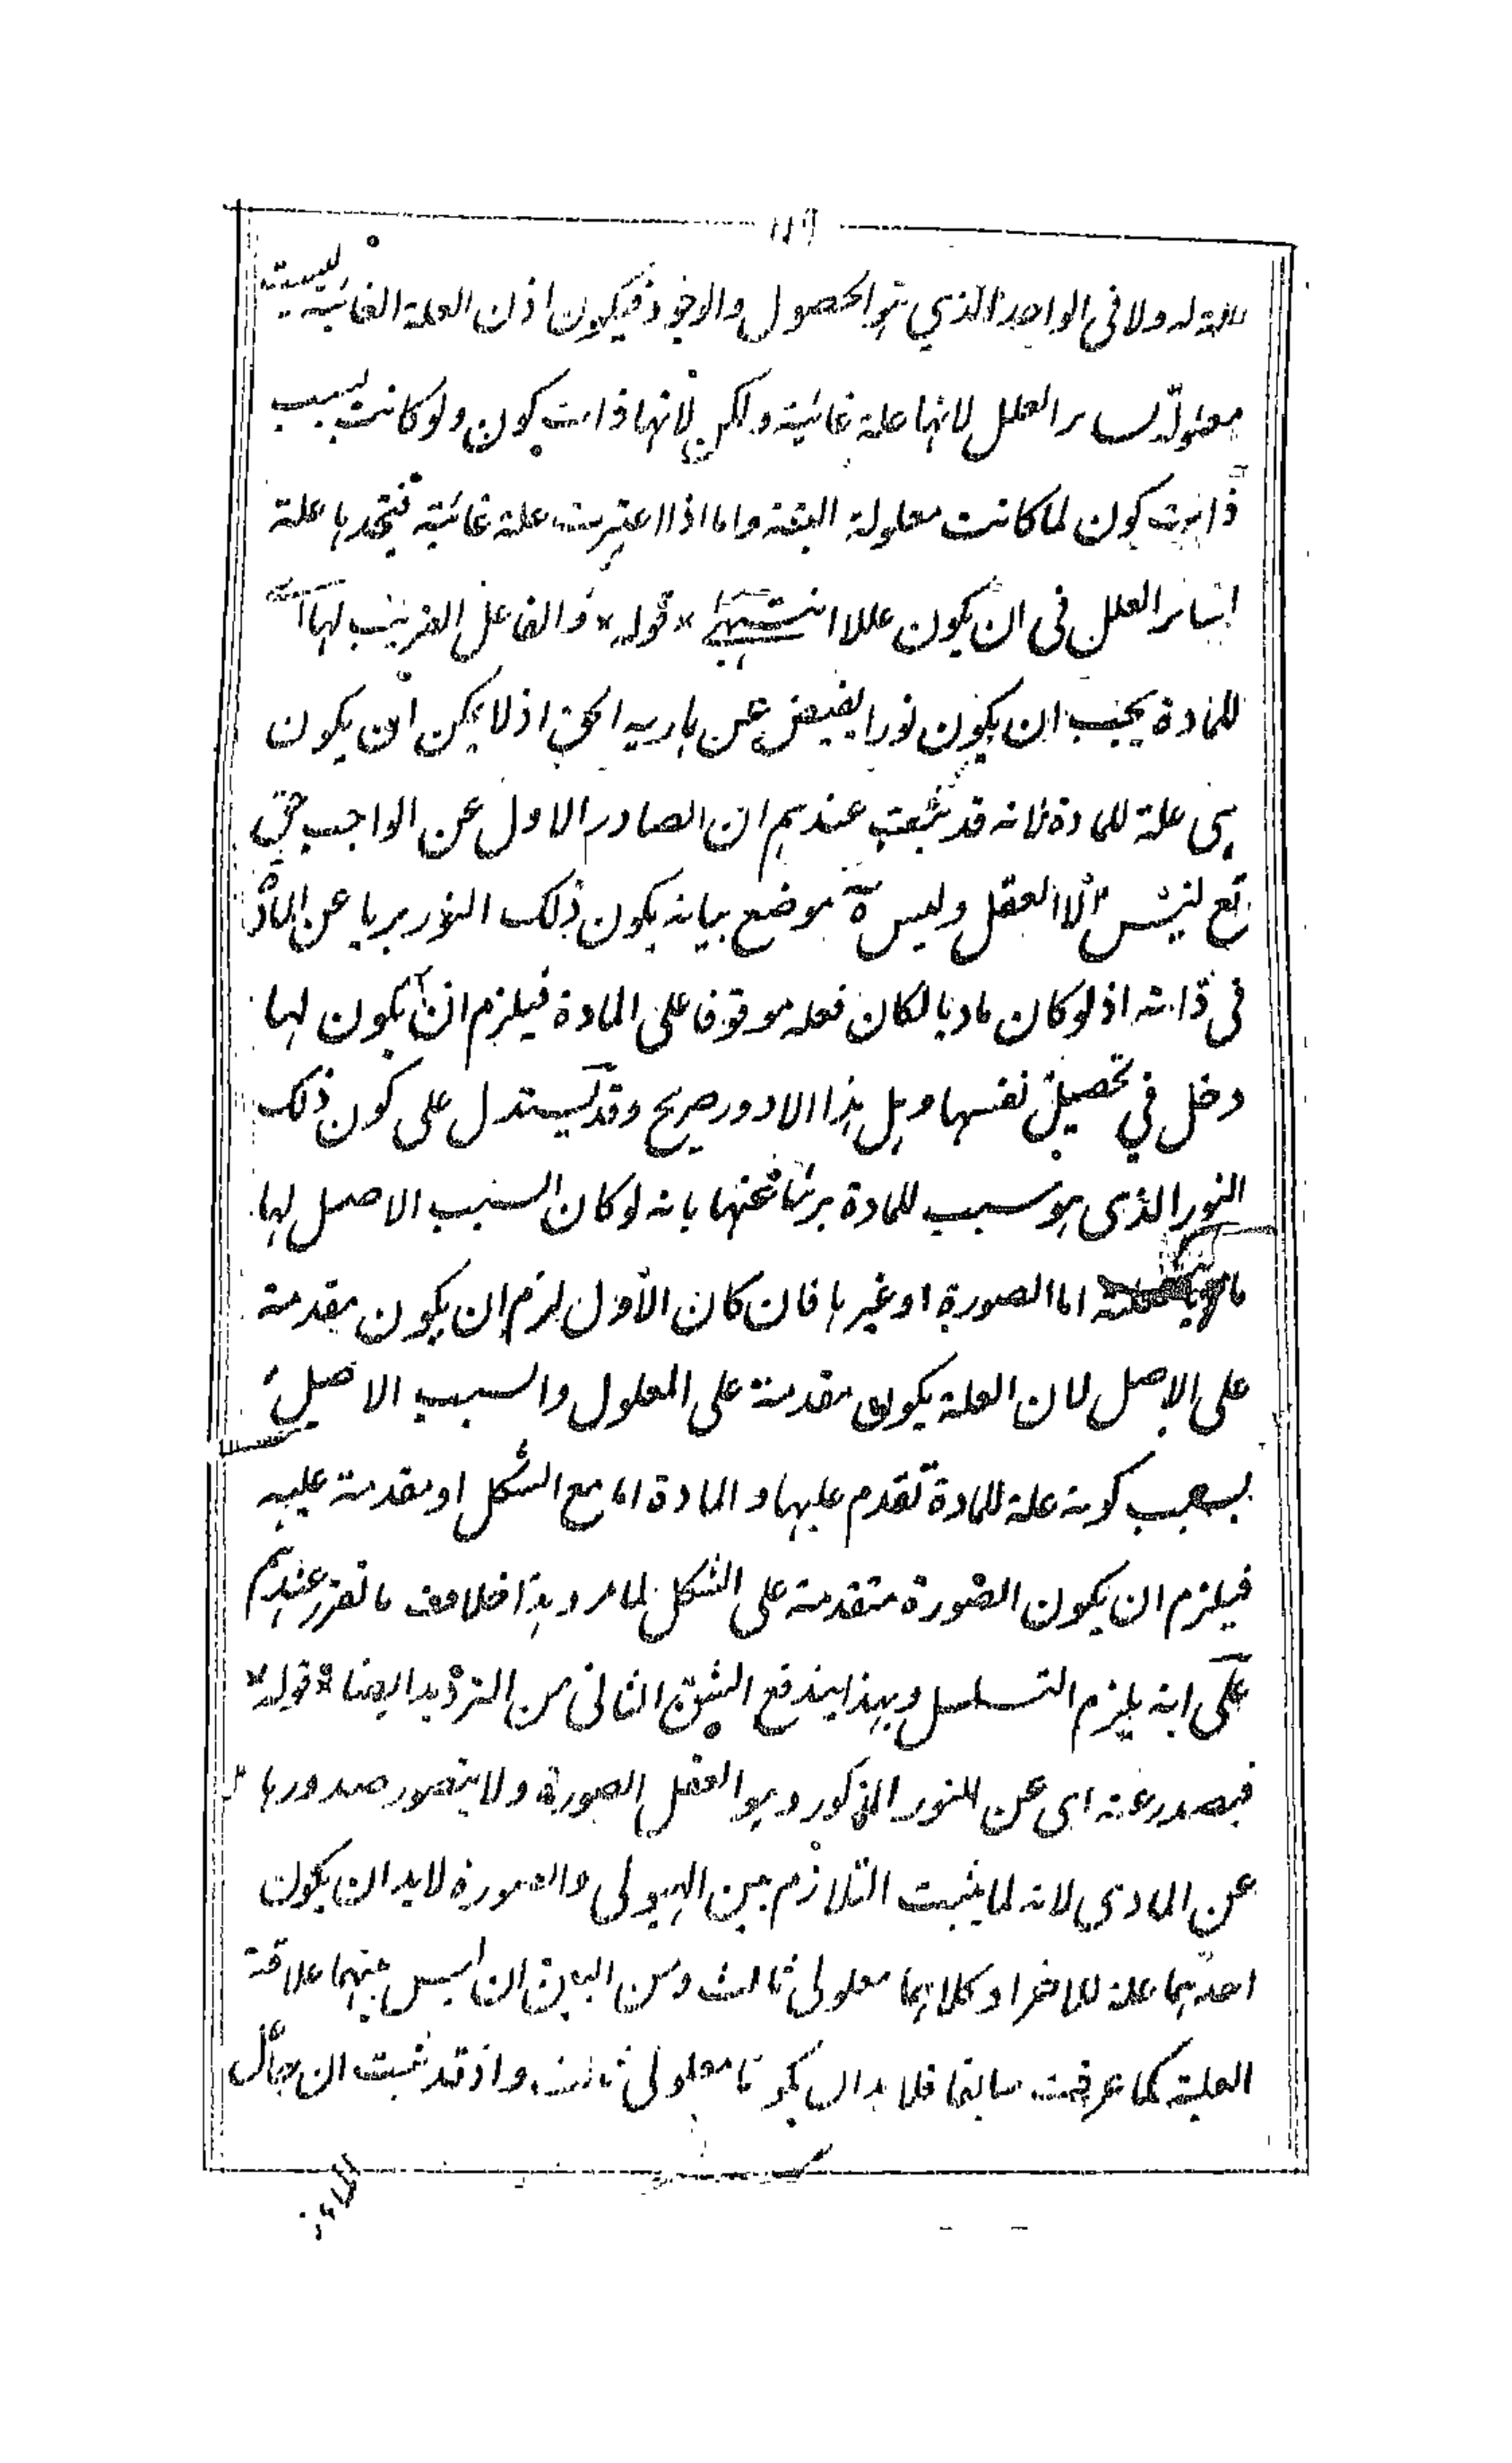 ١١٩
علة له ولا فى الواحد الذي هو الحصول والوجود فيكون اذن العلة الغائية ليست
معلولة لسائر العلل لانها علة غائية ولكن لانها ذات كون ولو كانت ليست
ذات كون لما كانت معلولة البتة واما اذا اعتبرت علة غائية فتجدها علة
لسائر العلل فى ان يكون عللا انتهى * قوله * فالفاعل القريب لها آه
للمادة يجب ان يكون نورا يفيض عن باريه الحق اذ لا يمكن ان يكون
هى علة للمادة لانه قد ثبت عندهم ان الصادر الاول عن الواجب حق
تع ليس الا العقل وليس ة موضع بيانه يكون ذلك النور بريا عن المادة
فى ذاته اذ لو كان ماديا لكان فعله موقوفا على المادة فيلزم ان يكون لها
دخل في تحصيل نفسها وهل هذا الا دور صريح وقد يستدل على كون ذلك
النور الذى هو سبب للمادة بريئا عنها بانه لو كان السبب الاصل لها
ما اما الصورة او غيرها فان كان الاول لزم ان يكون مقدمة
على الاصل لان العلة يكون مقدمة على المعلول والسبب الاصل
بسبب كونه علة للمادة تقدم عليها والمادة اما مع الشكل او مقدمة عليه
فيلزم ان يكون الصورة متقدمة على الشكل لما مر وهذا خلاف ما تقرر عندهم
على انه يلزم التسلسل وبهذا يندفع الشق الثانى من الترديد ايضا * قوله *
فيصدر عنه اى عن النور المذكور وهو العقل الصورة ولا يتصور صدورها
عن المادى لانه لما يثبت التلازم بين الهيولى والصورة لابد ان يكون
احدهما علة للاخر او كلاهما معلولى ثالث ومن البين ان ليس بينهما علاقة
العلية كما عرفت سابقا فلا بد ان يكونا معلولى ثالث واذ قد ثبت ان